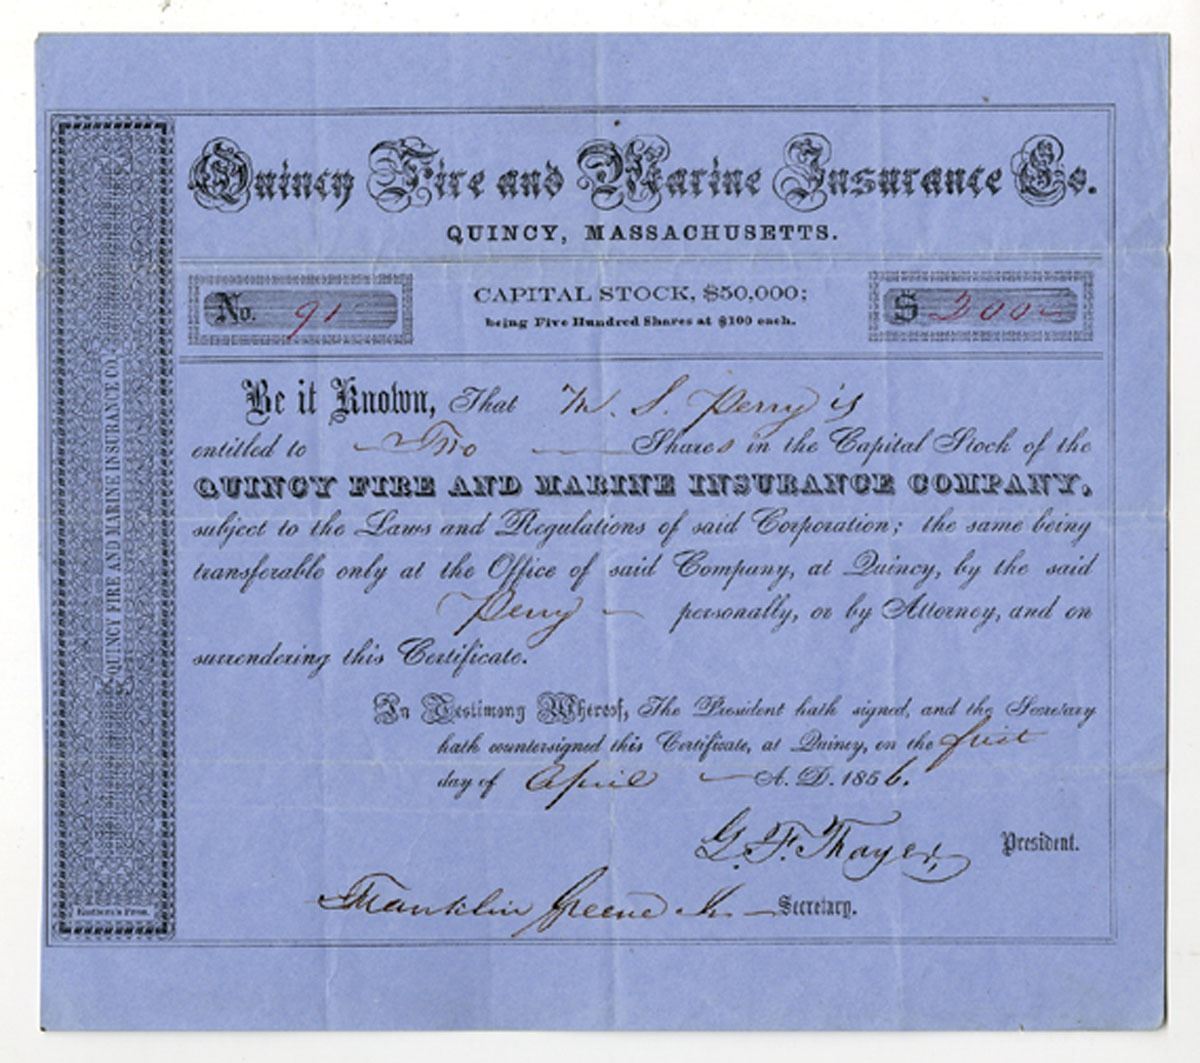 Quincy Fire and Marine Insurance Co.
QUINCY, MASSACHUSETTS.
No. 91
CAPITAL STOCK, $50,000;
being Five Hundred Shares at $100 each.
$ 200
Be it Known, That M. S. Perry is
entitled to Two Shares in the Capital Stock of the
QUINCY FIRE AND MARINE INSURANCE COMPANY,
subject to the Laws and Regulations of said Corporation; the same being
transferable only at the Office of said Company, at Quincy, by the said
Perry personally, or by Attorney, and on
surrendering this Certificate.
In Testimony Whereof, The President hath signed, and the Secretary
hath countersigned this Certificate, at Quincy, on the first
day of April A. D. 1856.
G. F. Thayer, President.
Franklin Greene Jr. Secretary.
QUINCY FIRE AND MARINE INSURANCE CO.